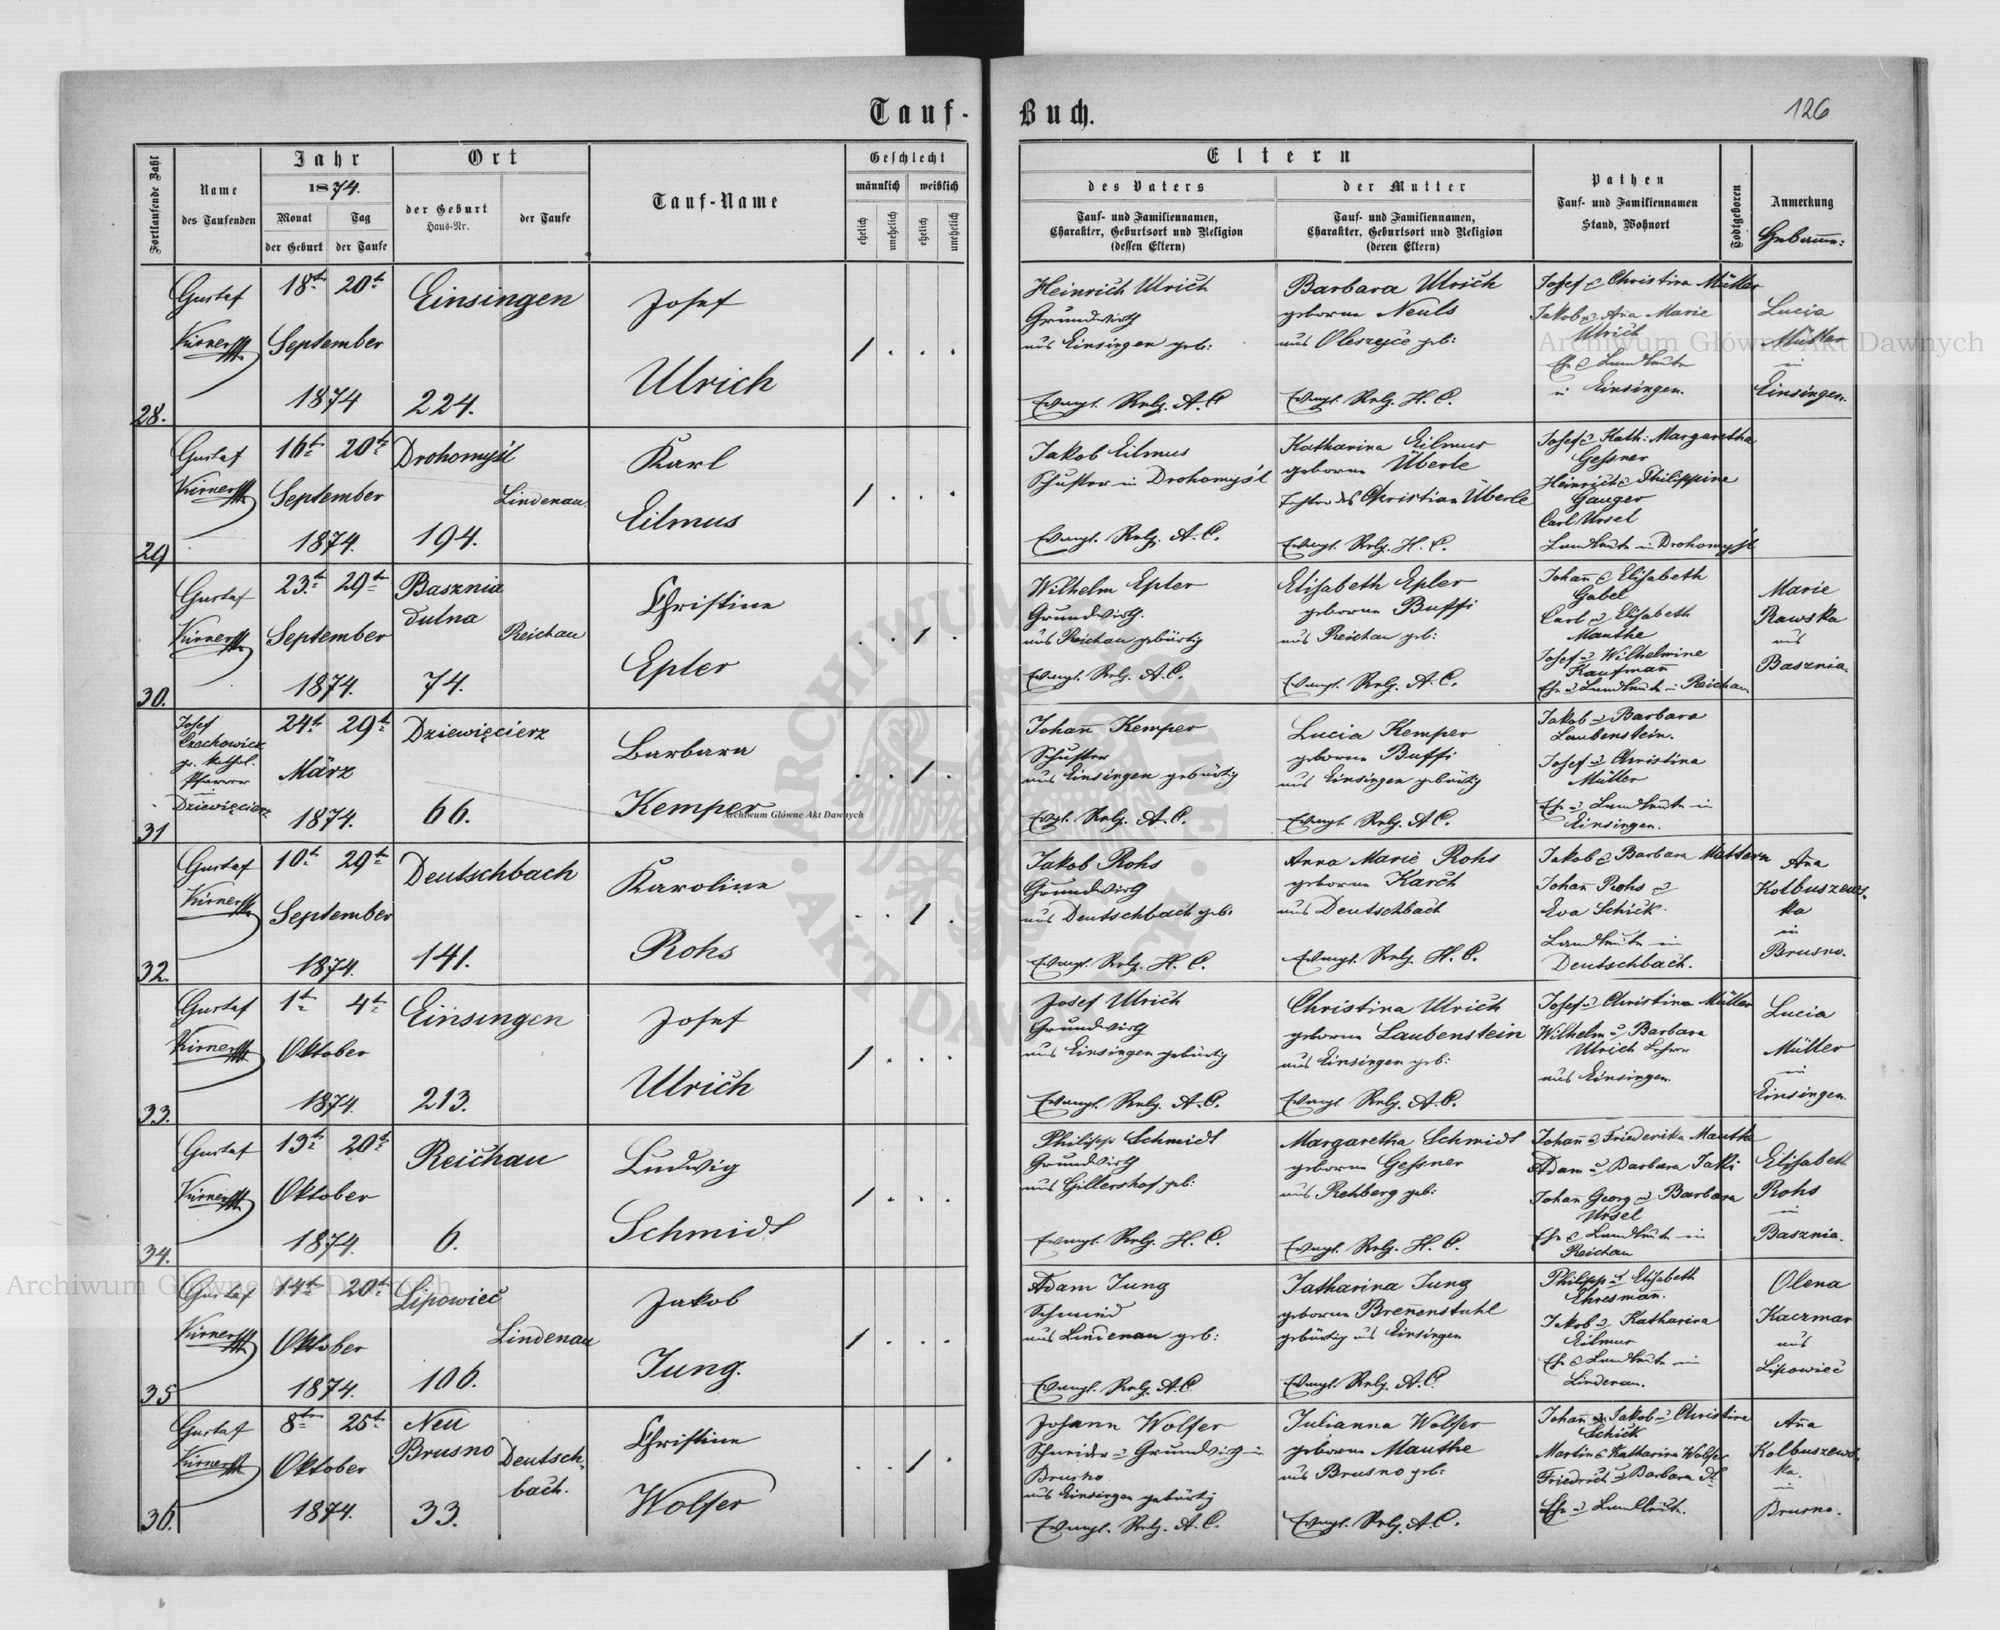 Tauf-Buch.
126
Fortlaufende Zahl
Name
des Taufenden
Jahr
1874.
Monat
Tag
der Geburt
der Taufe
Ort
der Geburt
Haus-Nr.
der Taufe
Tauf-Name
Geschlecht
männlich
weiblich
ehelich
unehelich
ehelich
unehelich
Eltern
des Vaters
Tauf- und Familiennamen,
Charakter, Geburtsort und Religion
(dessen Eltern)
der Mutter
Tauf- und Familiennamen,
Charakter, Geburtsort und Religion
(deren Eltern)
Pathen
Tauf- und Familiennamen
Stand, Wohnort
Todtgeboren
Anmerkung
28.
Gustaf
18t 20t
September
1874
Einsingen
224.
Josef
Ulrich
Heinrich Ulrich
Grundwirth
aus Einsingen geb:
Evangl. Relg. A. C.
Barbara Ulrich
geborne Neuls
aus Oleszyce geb:
Evangl. Relg. H. C.
Josef & Christina Müller
Jakob & Ana Marie
Ulrich
Einsingen.
Lucia
Müller
in
Einsingen.
29
Gustaf
16t 20t
September
1874.
Drohomyśl
194.
Lindenau
Karl
Eilmus
Jakob Eilmus
Schuster in Drohomyśl
Evangl. Relg. A. C.
Katharina Eilmus
geborne Überle
Tochter des Christian Überle
Evangl. Relg. H. C.
Josef & Kath: Margaretha
Gessner
Heinrich & Philippine
Gauger
Carl Ursel
Landleute in Drohomyśl
30.
Gustaf
23t 29t
September
1874.
Basznia
dulna
74.
Reichau
Christine
Epler
Wilhelm Epler
Grundwirth.
aus Reichau gebürtig
Evangl. Relg. A. C.
Elisabeth Epler
geborne Buffi
aus Reichau geb:
Evangl. Relg. A. C.
Johann & Elisabeth
Gabel
Carl & Elisabeth
Manthe
Josef & Wilhelmine
Kaufmann
Ehe & Landleute in Reichau
Marie
Rawska
aus
Basznia.
31
Josef
Czachowicz
gr. kathol.
Pfarrer
in
Dziewięcierz
24t 29t
März
1874.
Dziewięcierz
66.
Barbara
Kemper
Johann Kemper
Schuster
aus Einsingen gebürtig
Evgl. Relg. A. C.
Lucia Kemper
geborne Buffi
aus Einsingen gebürtig
Evangl. Relg. A C.
Jakob & Barbara
Laubenstein.
Josef & Christina
Müller
Ehe & Landleute in
Einsingen.
32.
Gustaf
10t 29t
September
1874.
Deutschbach
141.
Karoline
Rohs
Jakob Rohs
Grundwirth
aus Deutschbach geb:
Evangl. Relg. H. C.
Anna Marie Rohs
geborne Karch
aus Deutschbach
Evangl. Relg. H. C.
Jakob & Barbara Mattern
Johann Rohs &
Eva Schick.
Landleute in
Deutschbach.
Ana
Kolbuszews-
ka
in
Brusno.
33.
Gustaf
1t 4t
Oktober
1874.
Einsingen
213.
Josef
Ulrich
Josef Ulrich
Grundwirth
aus Einsingen gebürtig
Evangl. Relg. A. C.
Christina Ulrich
geborne Laubenstein
aus Einsingen geb:
Evangl. Relg. A. C.
Josef & Christina Müller
Wilhelm & Barbara
Ulrich
aus Einsingen.
Lucia
Müller
in
Einsingen.
34.
Gustaf
13t 20t
Oktober
1874.
Reichau
6.
Ludwig
Schmidt
Philipp Schmidt
Grundwirth
aus Hillershof geb:
Evangl. Relg. H. C.
Margaretha Schmidt
geborne Gessner
aus Rehberg geb:
Evangl. Relg. H. C.
Johann & Friederika Manthe
Adam & Barbara Jakki
Johan Georg & Barbara
Ursel
Ehe & Landleute in
Reichau
Elisabeth
Rohs
in
Basznia.
35
Gustaf
14t 20t
Oktober
1874.
Lipowiec
106.
Lindenau
Jakob
Jung.
Adam Jung
Schmied
aus Lindenau geb:
Evangl. Relg. A. C.
Katharina Jung
geborne Brennenstuhl
gebürtig aus Einsingen
Evangl. Relg. A. C.
Philipp & Elisabeth
Ehresmann.
Jakob & Katharina
Eilmus
Ehe & Landleute in
Lindenau.
Olena
Kaczmar
aus
Lipowiec
36.
Gustaf
8t 25t
Oktober
1874.
Neu
Brusno
33.
Deutsch-
bach.
Christine
Wolfer
Johann Wolfer
Schneider & Grundwirth in
Brusno
aus Einsingen gebürtig
Evangl. Relg. A. C.
Julianna Wolfer
geborne Manthe
aus Brusno geb:
Evangl. Relg. A. C.
Schick
Martin & Katharina Wolfer
Friedrich & Barbara
Ehe & Landleute.
Ana
Kolbuszews-
ka.
in
Brusno.
Archiwum Główne Akt Dawnych
Archiwum Główne Akt Dawnych
Archiwum Główne Akt Dawnych